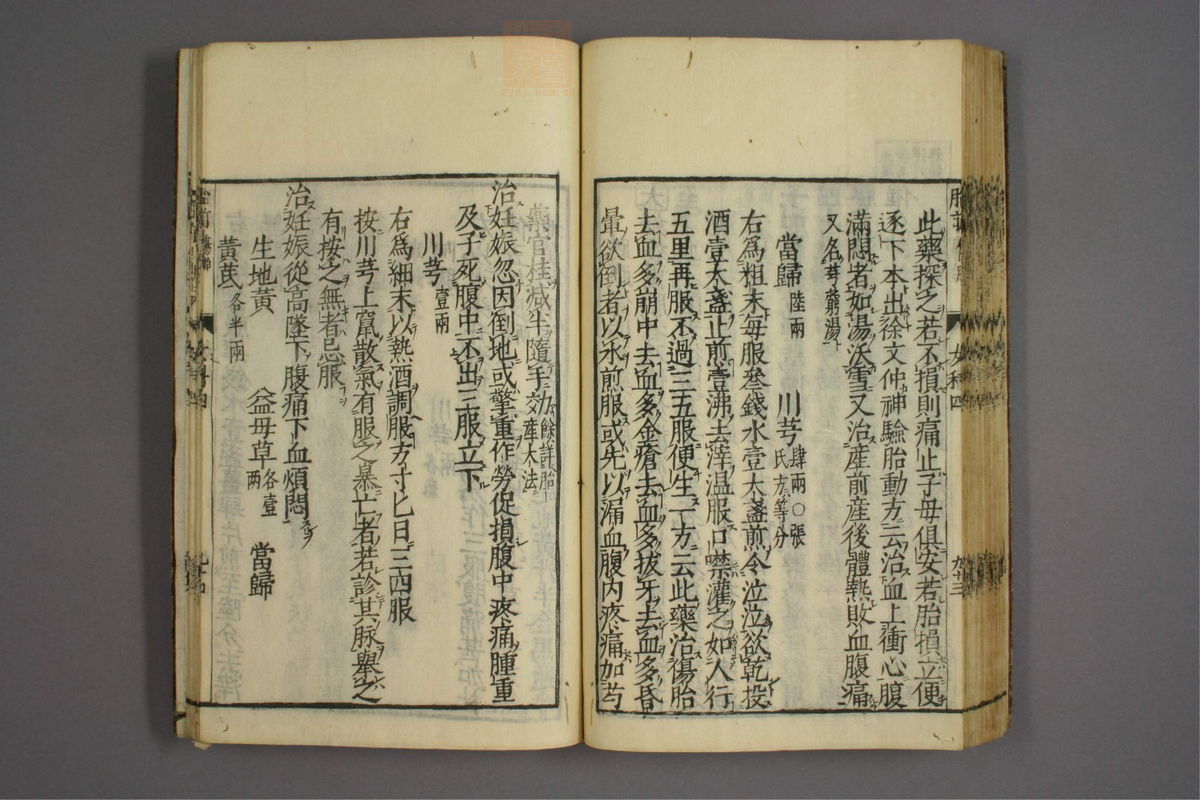 此藥探之若不損則痛止子母俱安若胎損立便
逐下本出徐文仲神驗胎動方云治血上衝心腹
滿悶者如湯沃雪又治產前產後體熱敗血腹痛
又名芎藭湯
當歸 陸兩 川芎 肆兩〇張氏方等分
右為粗末每服叁錢水壹大盞煎令泣泣欲乾投
酒壹大盞止煎壹沸去滓温服口噤灌之如人行
五里再服不過三五服便生一方云此藥治傷胎
去血多崩中去血多金瘡去血多拔牙去血多昏
暈欲倒者以水煎服或先以漏血腹內疼痛加芍
藥官桂減半隨手効 餘詳胎產大法
治妊娠忽因倒地或擎重作勞促損腹中疼痛腫重
及子死腹中不出三服立下
川芎 壹兩
右為細末以熱酒調服方寸匕日三四服
按川芎上竄散氣有服之暴亡者若診其脉舉之
有按之無者忌服
治妊娠從高墜下腹痛下血煩悶
生地黃 益母草 各壹兩 當歸
黃芪 各半兩
女科四
九十三